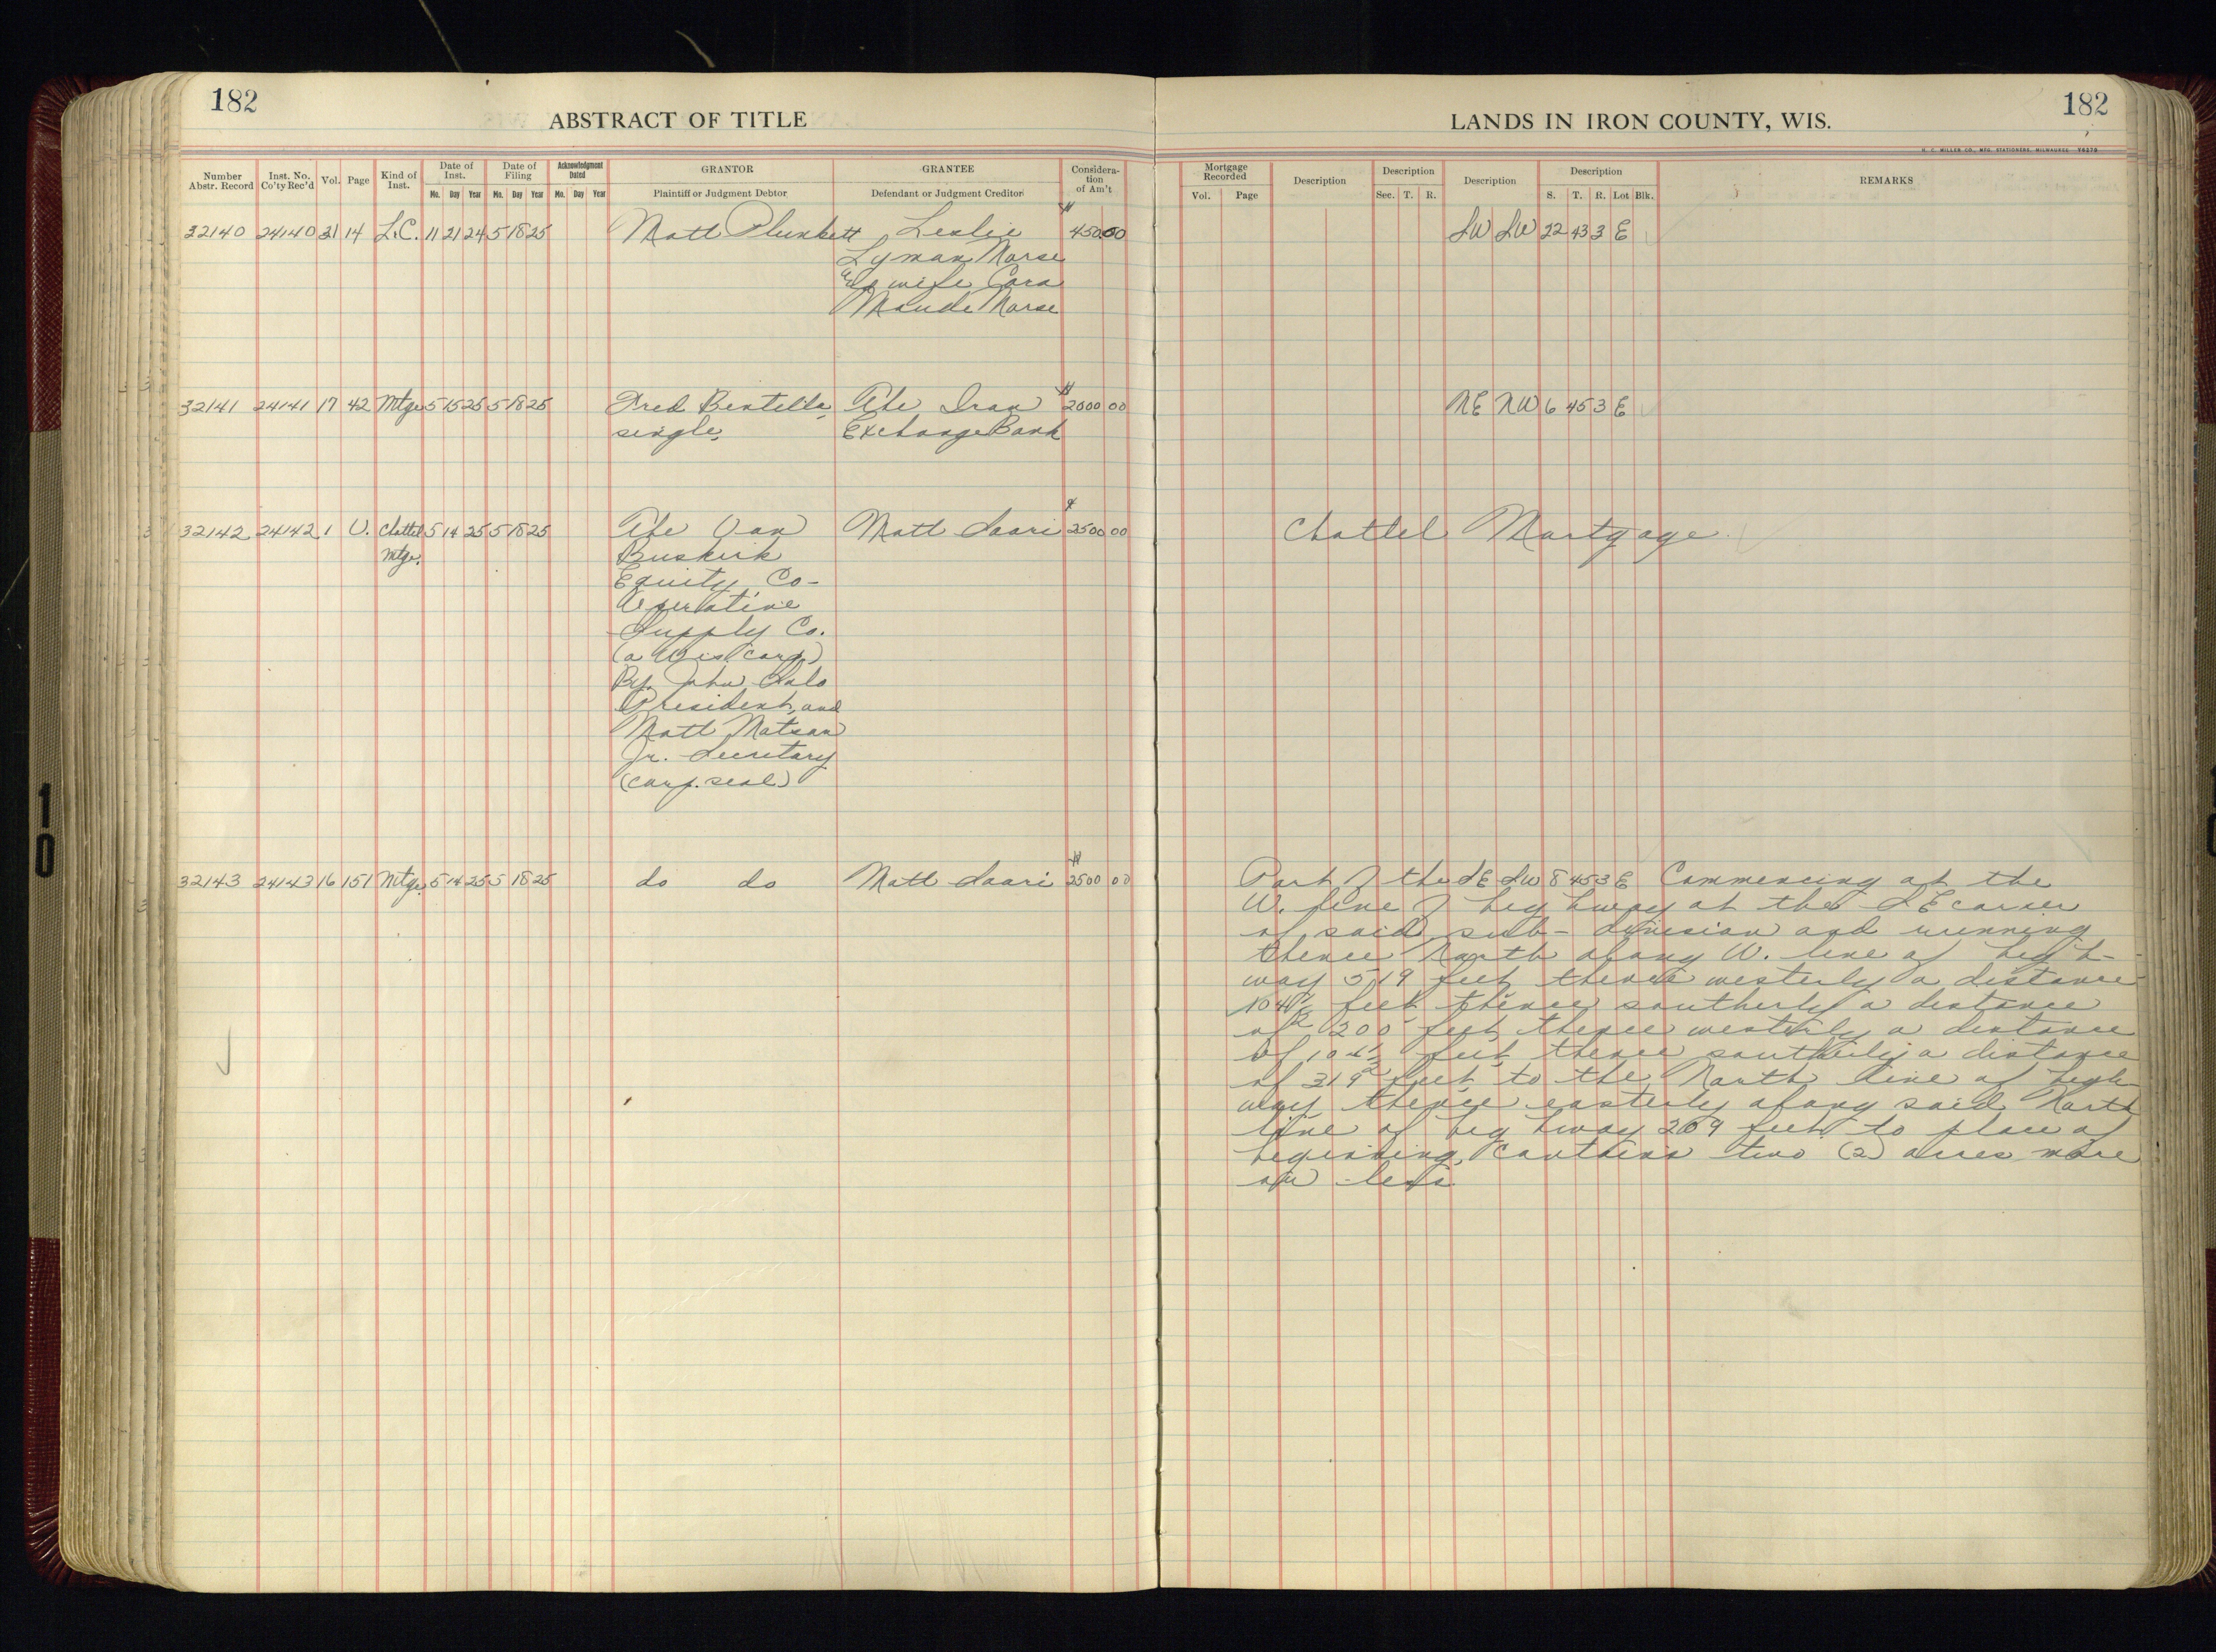 182
ABSTRACT OF TITLE
LANDS IN IRON COUNTY, WIS.
182
H. C. MILLER CO., MFG. STATIONERS, MILWAUKEE
Number Abstr. Record
Inst. No. Co'ty Rec'd
Vol.
Page
Kind of Inst.
Date of Inst.
Mo. Day Year
Date of Filing
Mo. Day Year
Acknowledgment Dated
Mo. Day Year
GRANTOR
Plaintiff or Judgment Debtor
GRANTEE
Defendant or Judgment Creditor
Considera-
tion
of Am't
Mortgage Recorded
Vol. Page
Description
Description
Sec. T. R.
Description
Description
S. T. R. Lot Blk.
REMARKS
32140 24140 31 14 L.C. 11 21 24 5 18 25 Matt Plunkett Leslie $450.00 SW SW 22 43 3 E
Lyman Morse
& wife Cora
Maude Morse
32141 24141 17 42 Mtge 5 15 25 5 18 25 Fred The Iron $2000 00 NE NW 6 45 3 E
single, Exchange Bank
32142 24142 1 U. Chattel 5 14 25 5 18 25 The Van Matt Saari $2500 00 Chattel Mortgage
Mtge. Buskirk
Equity Co-
Operative
Supply Co.
(a Wis corp)
By John Salo
President, and
Matt Matson
Jr. Secretary
(corp. seal)
32143 24143 16 151 Mtge 5 14 25 5 18 25 do do Matt Saari $2500 00 Part of the SE SW 8 45 3 E Commencing at the
W. line of highway at the SE corner
of said sub-division and running
thence North along W. line of high-
way 519 feet thence westerly a distance
104½ feet thence southerly a distance
of 200 feet, thence westerly a distance
of 104½ feet, thence southerly a distance
of 319 feet to the North line of high-
way thence easterly along said North
line of highway 209 feet to place of
beginning, contains two (2) acres more
or less.